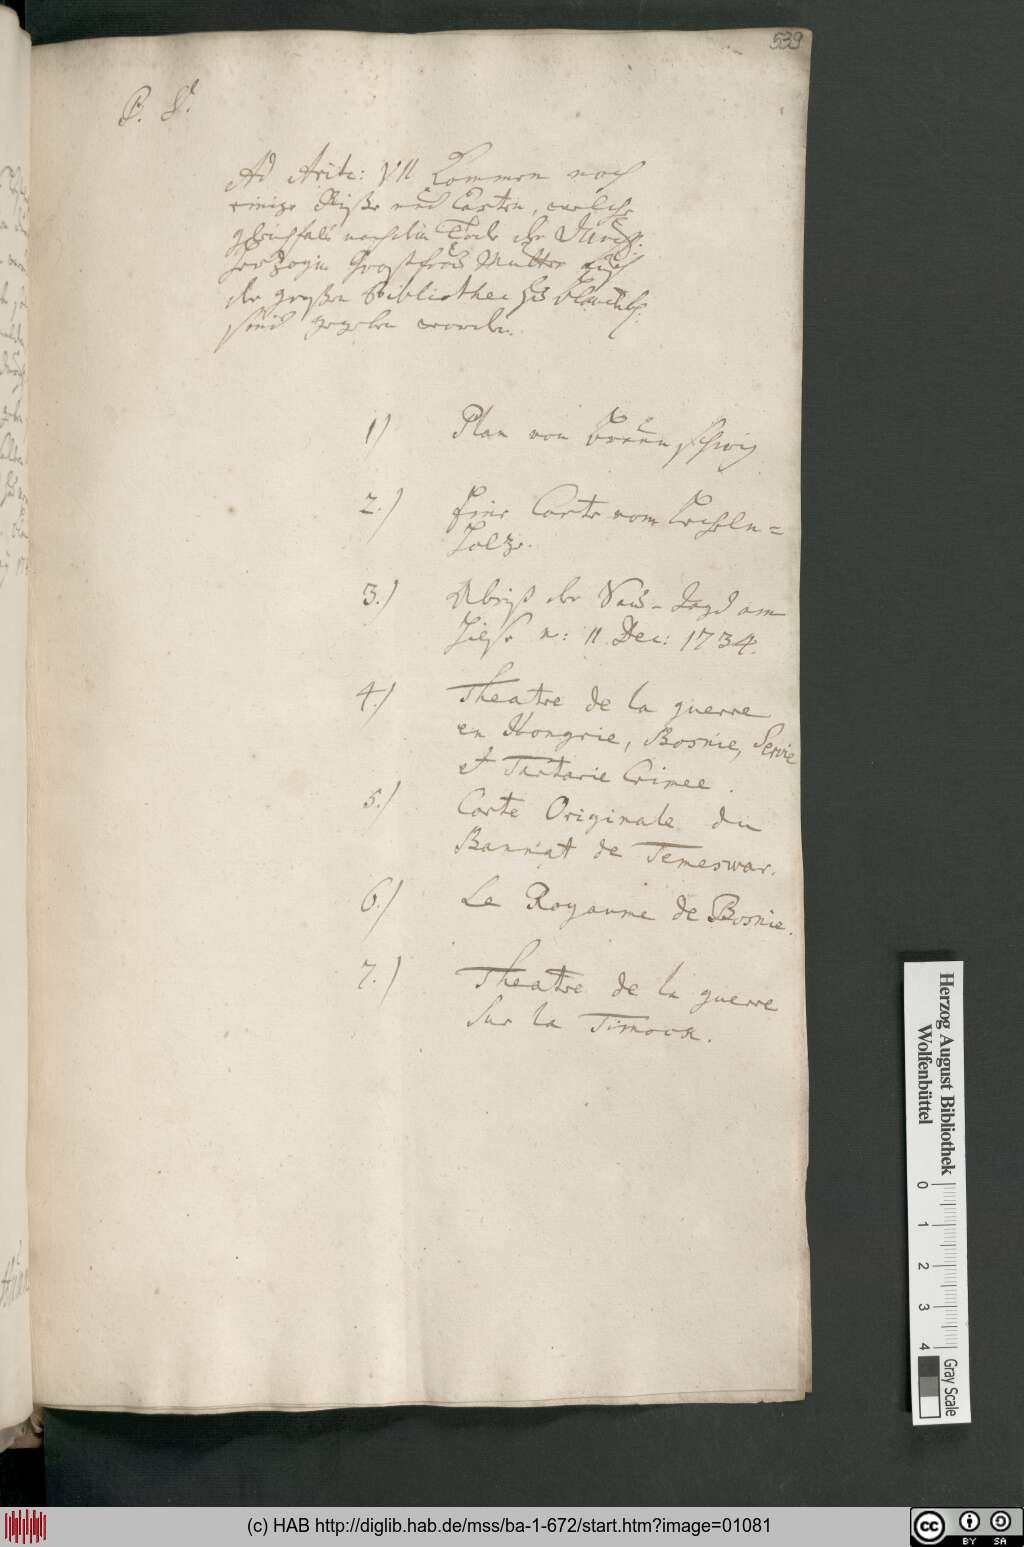 539
P. S.
Ad Artic: VII kommen noch
einige Riße und Carten, welche
gleichfals nach dem Tode der Durchl.
Herzogin Grosfrau Mutter auf
der großen Bibliothec zu
sind gegeben worden.
1) Plan von Braunschwig
2.) Eine Carte vom Lecheln=
Holze.
3.) Abriß der Sau-Jagd am
1734.
4.) Theatre de la guerre
en Hongrie, Bosnie, Servie
et Tartarie Crimee.
5.) Carte Originale du
Bannat de Temeswar.
6.) Le Royaume de Bosnie.
7.) Theatre de la guerre
Sur la Timock.
Herzog August Bibliothek
Wolfenbüttel
0 1 2 3 4
Gray Scale
(c) HAB http://diglib.hab.de/mss/ba-1-672/start.htm?image=01081
cc BY SA